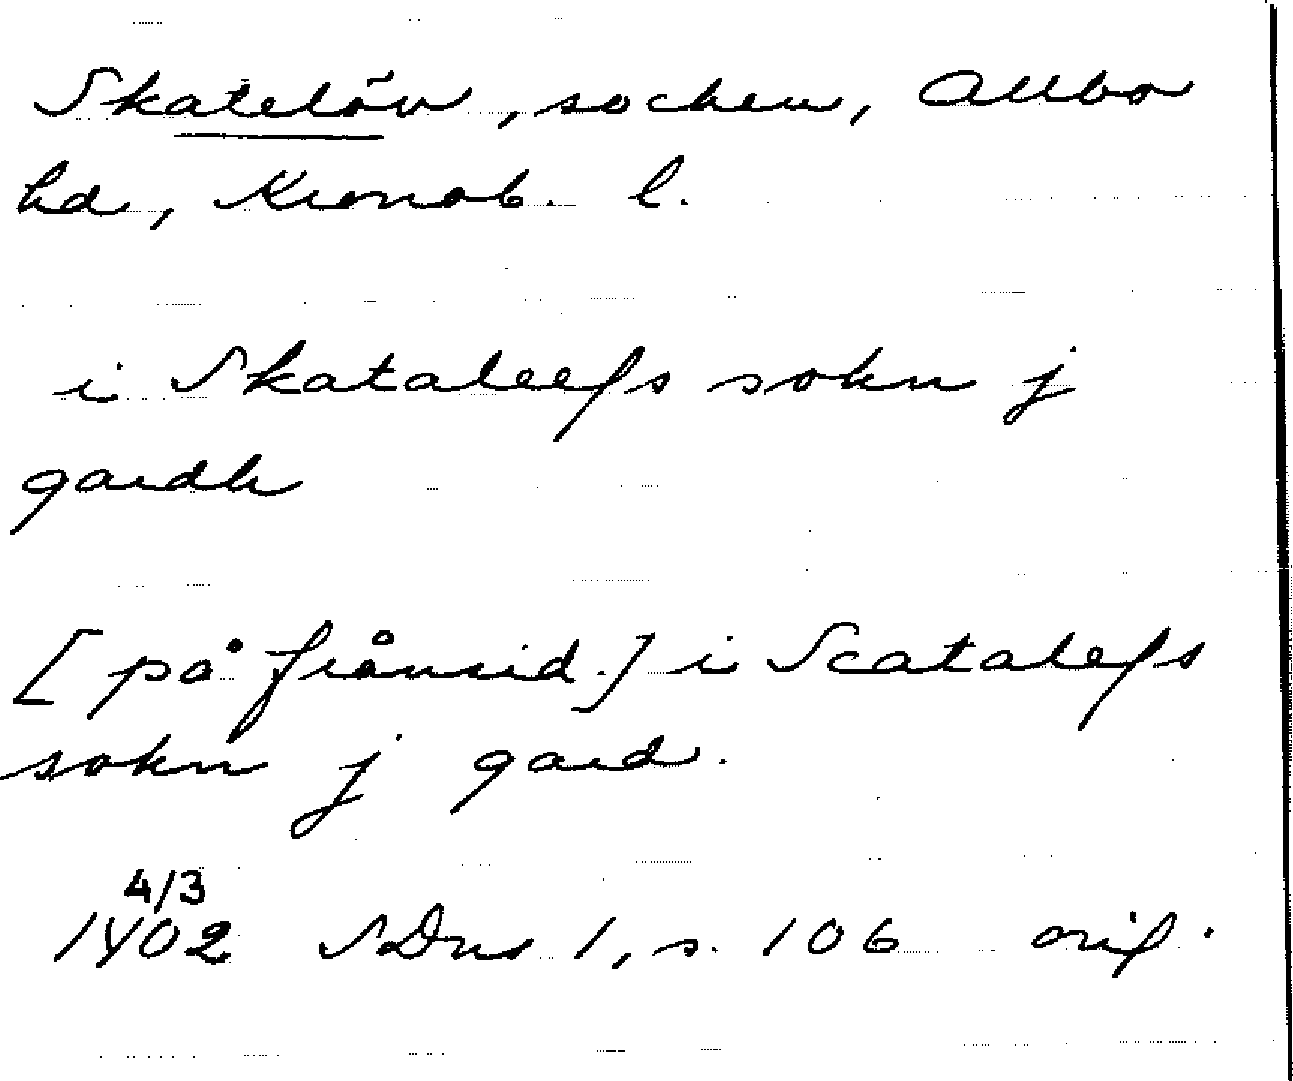 Skatelöv, socken, Allbo
hd, Kronob. l.
i Skataleefs sokn j
gardh
[på frånsid.] i Scatalefs
sokn j gard.
4/3
1402 SDns 1, s. 106 orig.